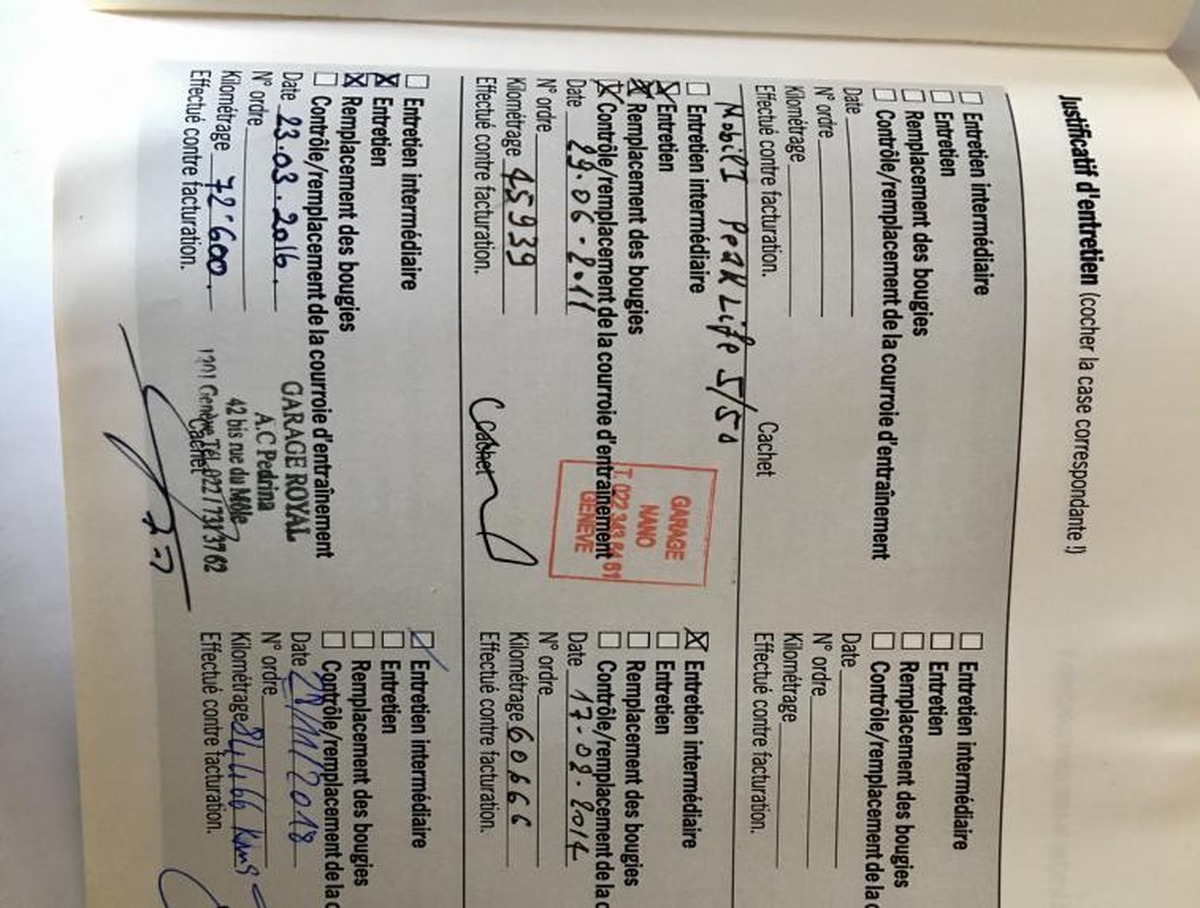 Justificatif d'entretien (cocher la case correspondante !)
Entretien intermédiaire
Entretien
Remplacement des bougies
Contrôle/remplacement de la courroie d'entraînement
Date
N° ordre
Kilométrage
Effectué contre facturation.
Cachet
Entretien intermédiaire
Entretien
Remplacement des bougies
Contrôle/remplacement de la c
Date
N° ordre
Kilométrage
Effectué contre facturation.
Mobil 1 Peak Life 5/50
Entretien intermédiaire
Entretien
Remplacement des bougies
Contrôle/remplacement de la courroie d'entraînement
Date 29.06.2011
N° ordre
Kilométrage 45939
Effectué contre facturation.
Cachet
GARAGE
NANO
T. 022 343 84 61
GENEVE
Entretien intermédiaire
Entretien
Remplacement des bougies
Contrôle/remplacement de la c
Date 17.02.2014
N° ordre
Kilométrage 60666
Effectué contre facturation.
Entretien intermédiaire
Entretien
Remplacement des bougies
Contrôle/remplacement de la courroie d'entraînement
Date 23.03.2016.
N° ordre
Kilométrage 72'600.
Effectué contre facturation.
GARAGE ROYAL
A.C Pedrina
42 bis rue du Môle
1201 Genève Tél. 022 / 731 37 62
Cachet
Entretien intermédiaire
Entretien
Remplacement des bougies
Contrôle/remplacement de la c
Date 28/11/2018
N° ordre
Kilométrage 84,466 Kms
Effectué contre facturation.